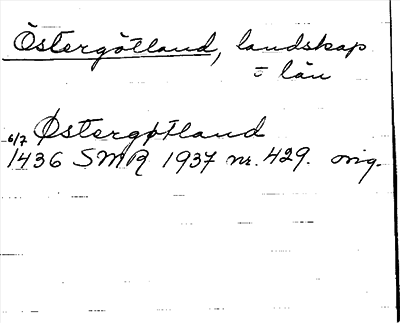 Östergötland, landskap
= län
6/7 Østergøtland
1436 SMR 1937 nr. 429. orig.